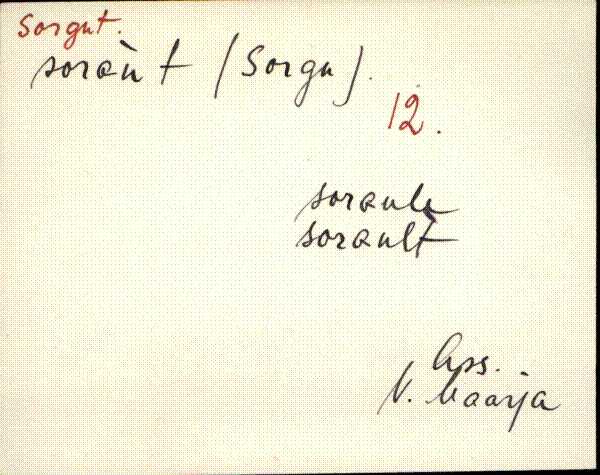 Sorgut.
soraùt (Sorgu).
12.
soraule
sorault
Aps.
V. Maarja